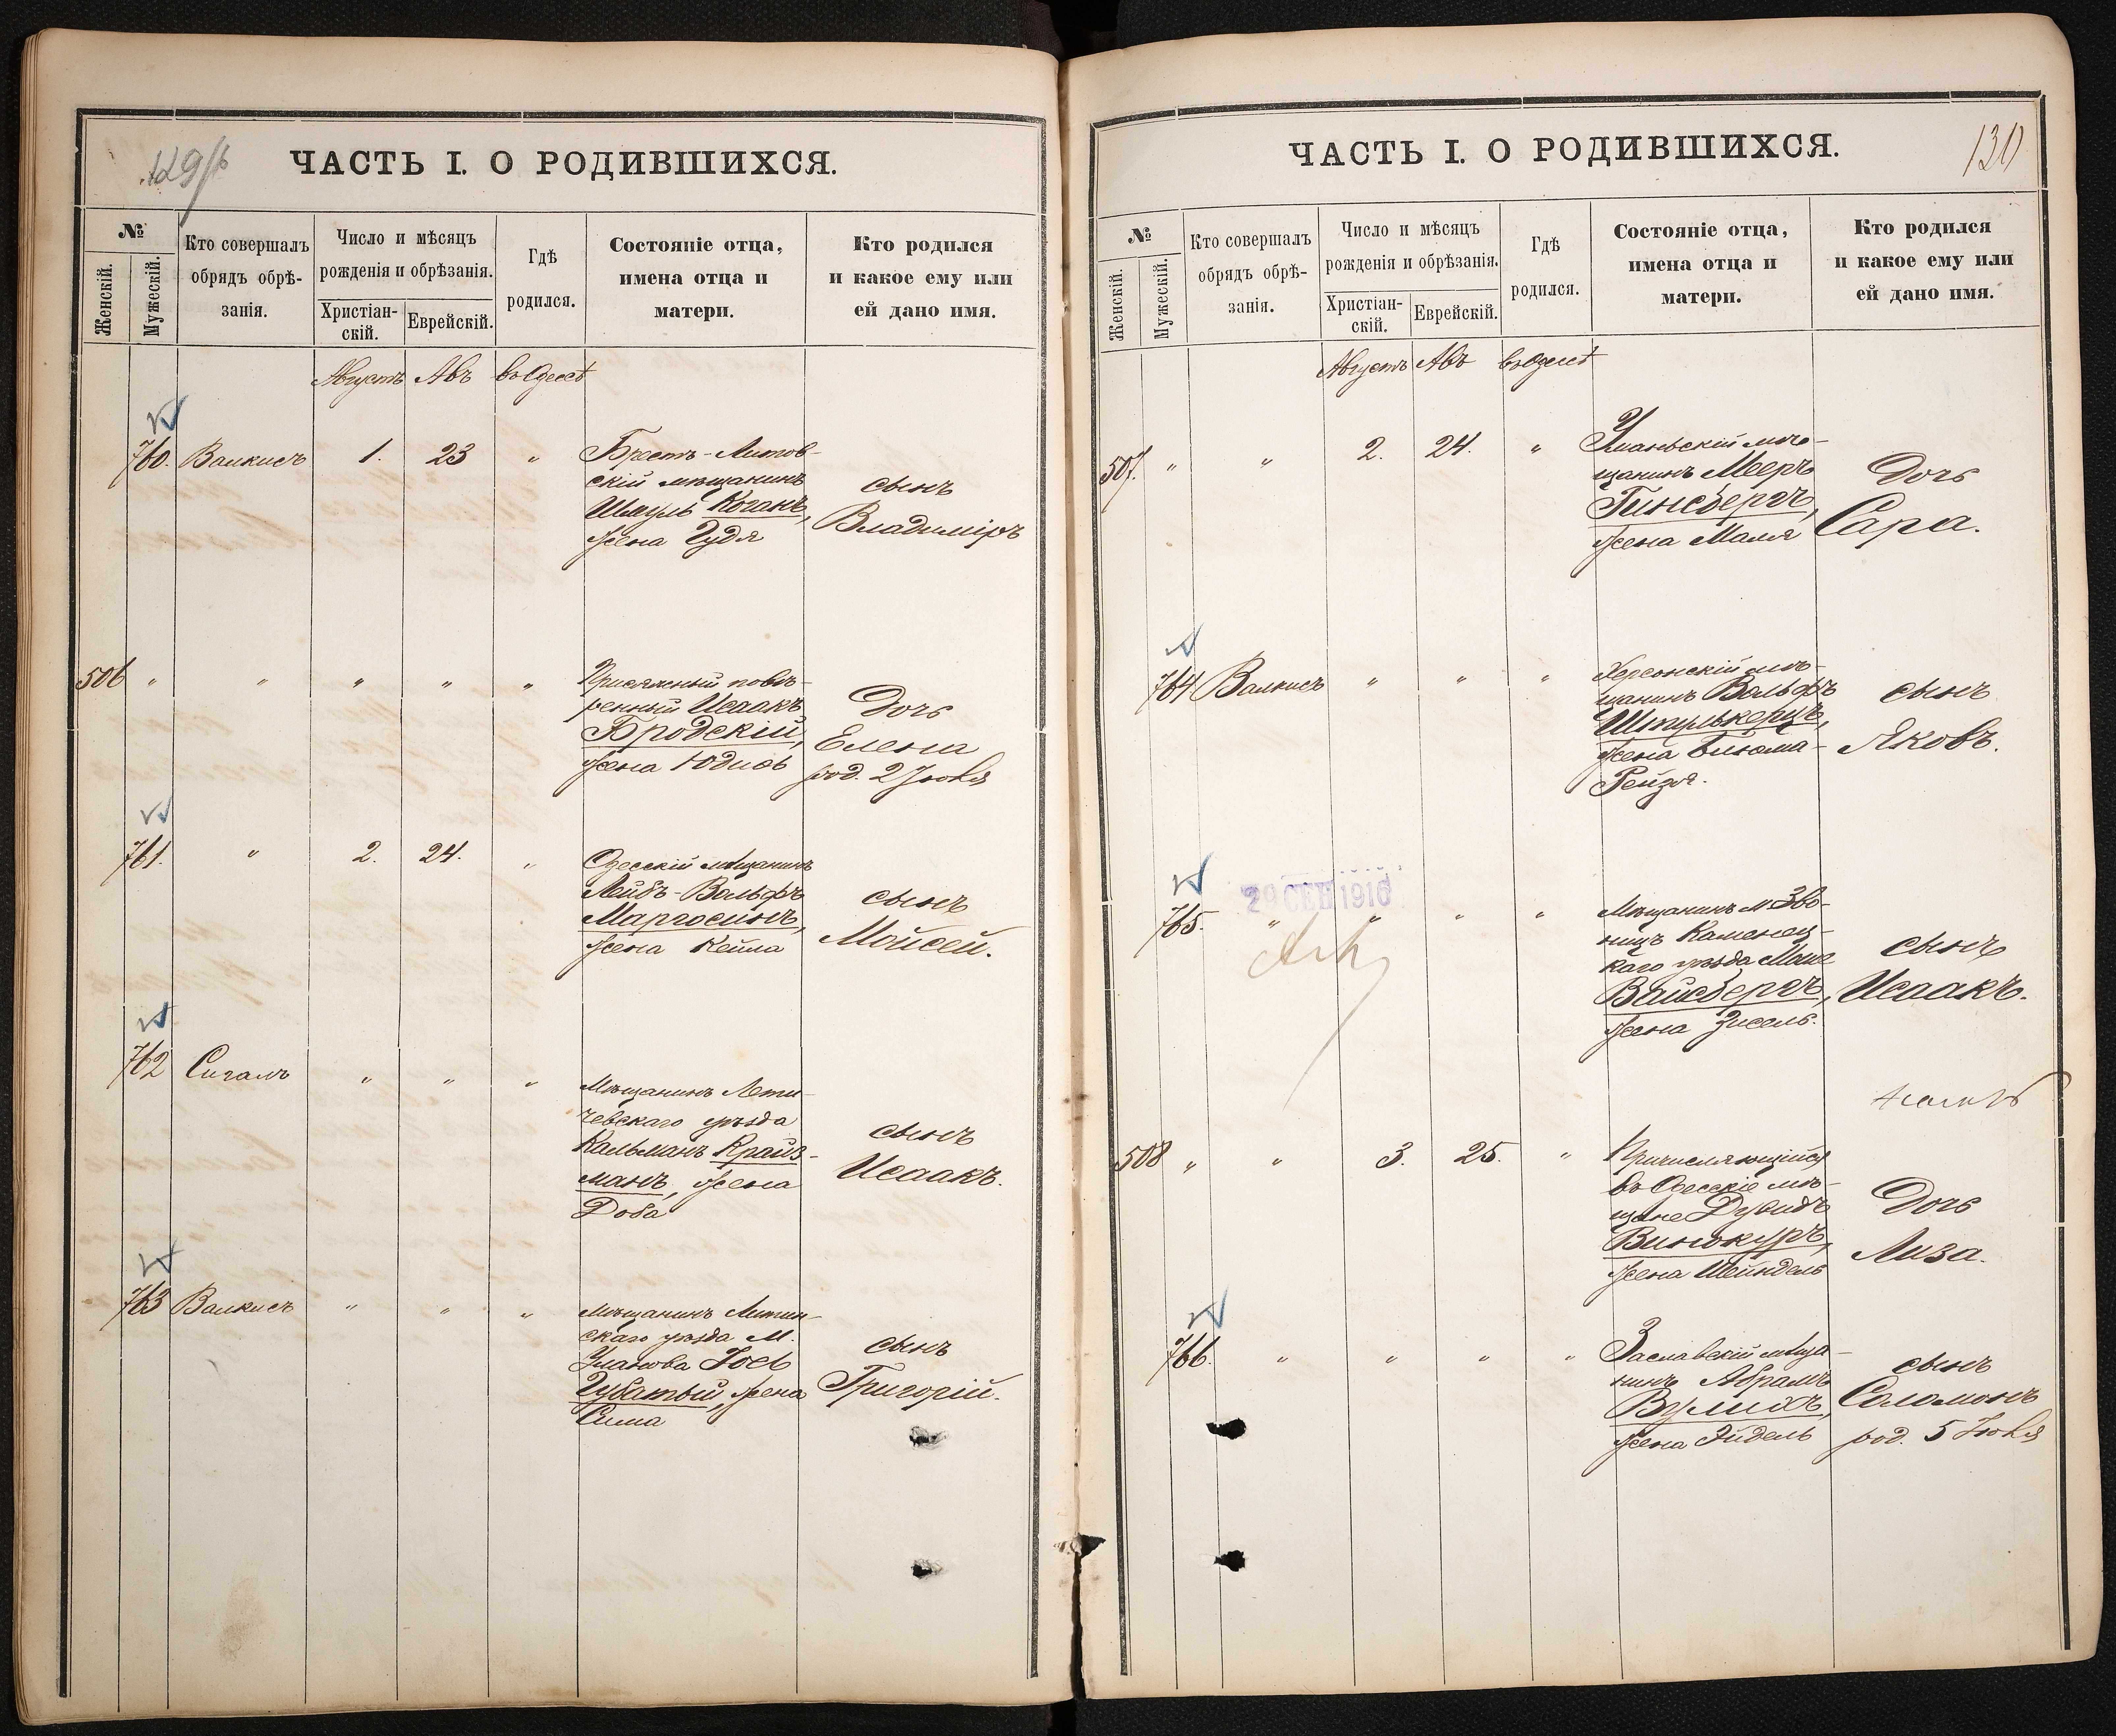 129/б
ЧАСТЬ I. О РОДИВШИХСЯ.
№
Женскій.
Мужескій.
Кто совершалъ
обрядъ обрѣ-
занія.
Число и мѣсяцъ
рожденія и обрѣзанія.
Христіан-
скій.
Еврейскій.
Гдѣ
родился.
Состояніе отца,
имена отца и
матери.
Кто родился
и какое ему или
ей дано имя.
Августъ Авъ въ Одессѣ
760. Валкисъ 1. 23 "
Брестъ-Литов-
скій мѣщанинъ
Шмуль Коганъ,
жена Гудя
сынъ
Владиміръ
506 " " " " "
Присяжный повѣ-
ренный Исаакъ
Бродскій,
жена Юдиѳь
Дочь
Елена
род. 2 Іюля
761. " 2. 24. "
Одесскій мѣщанинъ
Лейбъ-Вольфъ
Маргосинъ,
жена Кейла
сынъ
Мойсей.
762 Сигалъ " " "
Мѣщанинъ Лети-
чевскаго уѣзда
Кальманъ Крайз-
манъ, жена
Доба
сынъ
Исаакъ.
763 Валкисъ " " "
мѣщанинъ Литин-
скаго уѣзда М.
Уланова Іосъ
Губатый, жена
Сима
сынъ
Григорій.
130
ЧАСТЬ I. О РОДИВШИХСЯ.
№
Женскій.
Мужескій.
Кто совершалъ
обрядъ обрѣ-
занія.
Число и мѣсяцъ
рожденія и обрѣзанія.
Христіан-
скій.
Еврейскій.
Гдѣ
родился.
Состояніе отца,
имена отца и
матери.
Кто родился
и какое ему или
ей дано имя.
Августъ Авъ въ Одессѣ
507. " " 2. 24. "
Уманьскій мѣ-
щанинъ Мееръ
Гинсбергъ,
жена Маля
Дочь
Сара.
764 Валкисъ " " "
Херсонскій мѣ-
щанинъ Вольфъ
Штулькерцъ,
жена Бисюма-
Рейзя.
сынъ
Яковъ.
29 СЕН 1916
765. " " " "
Мѣщанинъ м. Зво-
ницъ Каменец-
каго уѣзда Моше
Вайсбергъ,
жена Зисель.
сынъ
Исаакъ.
508 " " 3. 25. "
Причисляющійся
въ Одесскіе мѣ-
щане Дувидъ
Винокуръ,
жена Шейндель
Дочь
Лиза.
766. " " " "
Заславскій мѣща-
нинъ Абрамъ
Вулихъ,
жена Эйдель
сынъ
Соломонъ
род. 5 Іюля